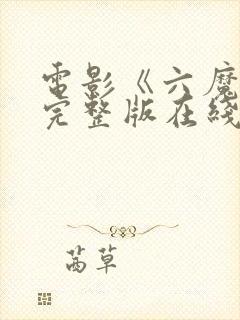 電影《六魔
完整版在綫
茜草